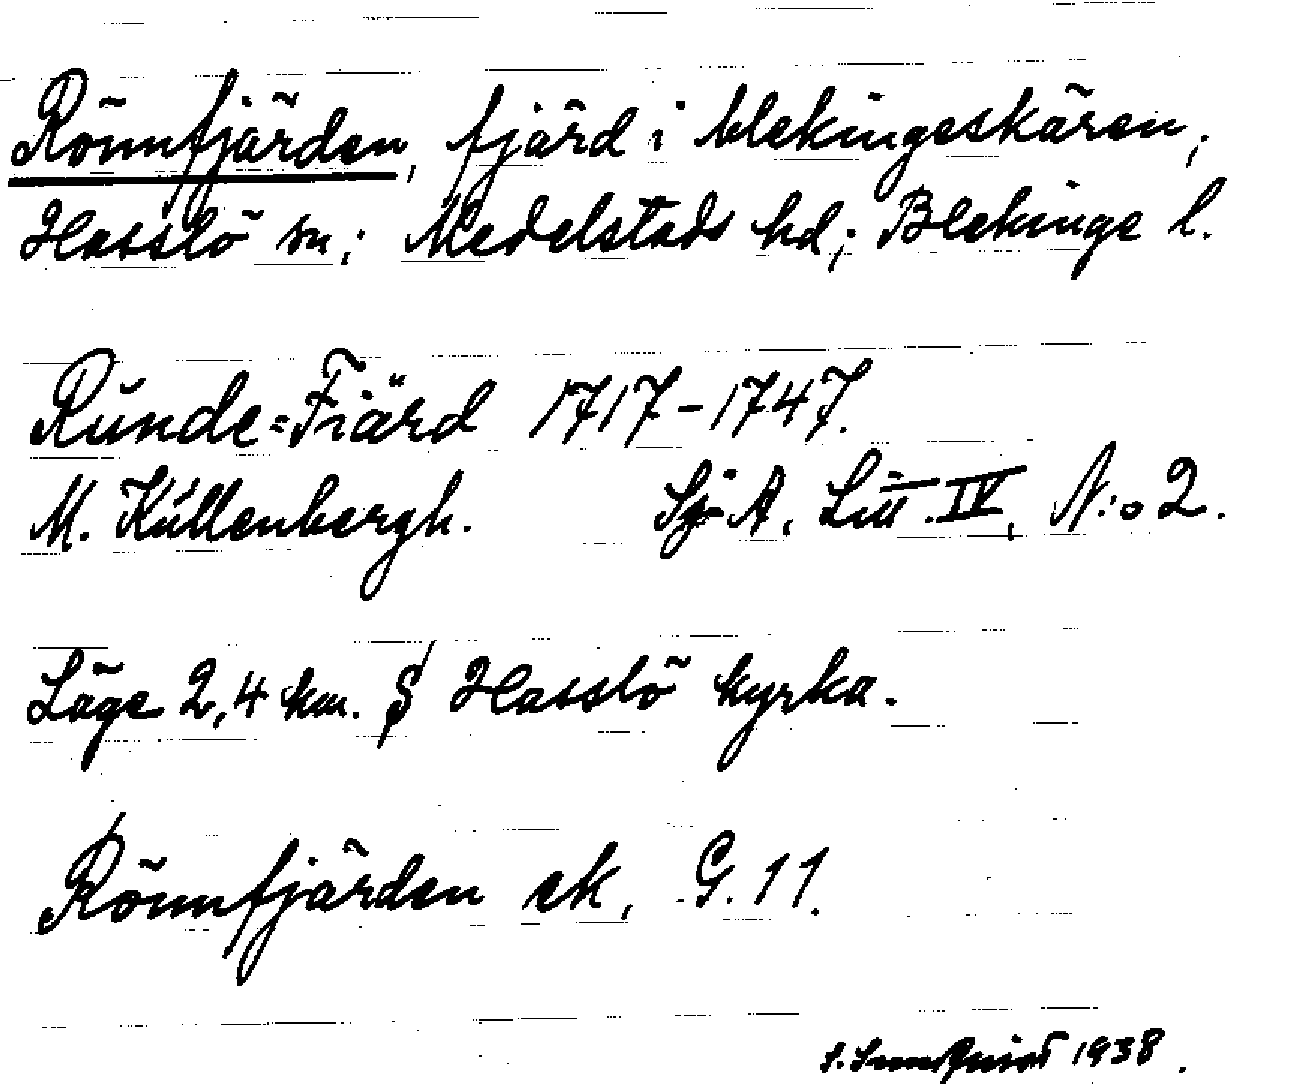 Rönnfjärden, fjärd i blekingeskären;
Hasslö sn; Medelstads hd; Blekinge l.
Runde=Fiärd 1717-1747.
M. Küllenbergh. Sj-A. Litt. IV, N:o 2.
Läge 2,4 km. S Hasslö kyrka.
Rönnfjärden ek, G. 11.
1938.